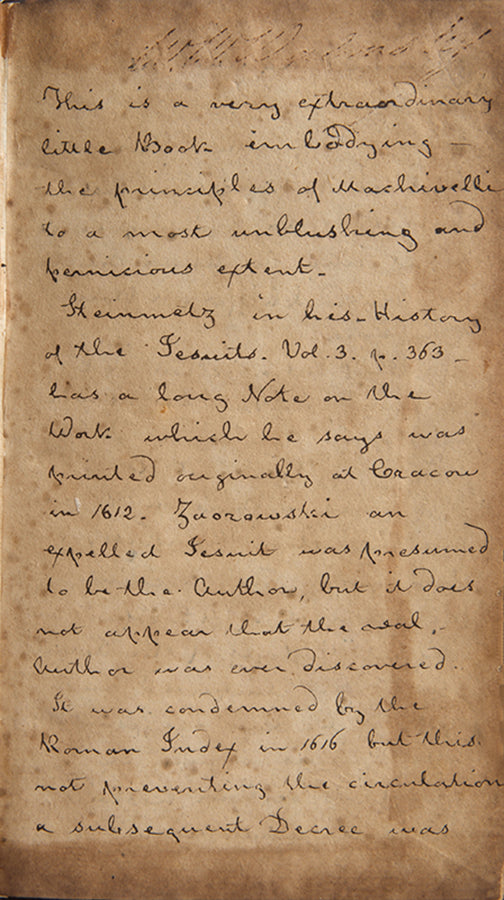 This is a very extraordinary
little Book embodying –
the principles of Machivelli
to a most unblushing and
pernicious extent –
Steinmetz in his – History
of the Jesuits. Vol. 3. p. 363 –
has a long Note on the
Work which he says was
printed originally at Cracow
in 1612. Zaorowski an
expelled Jesuit was presumed
to be the Author, but it does
not appear that the real
Author was ever discovered.
It was condemned by the
Roman Index in 1616 but this
not preventing the circulation
a subsequent Decree was